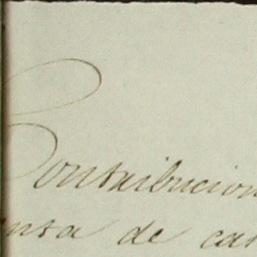 Contribucion
nta de car